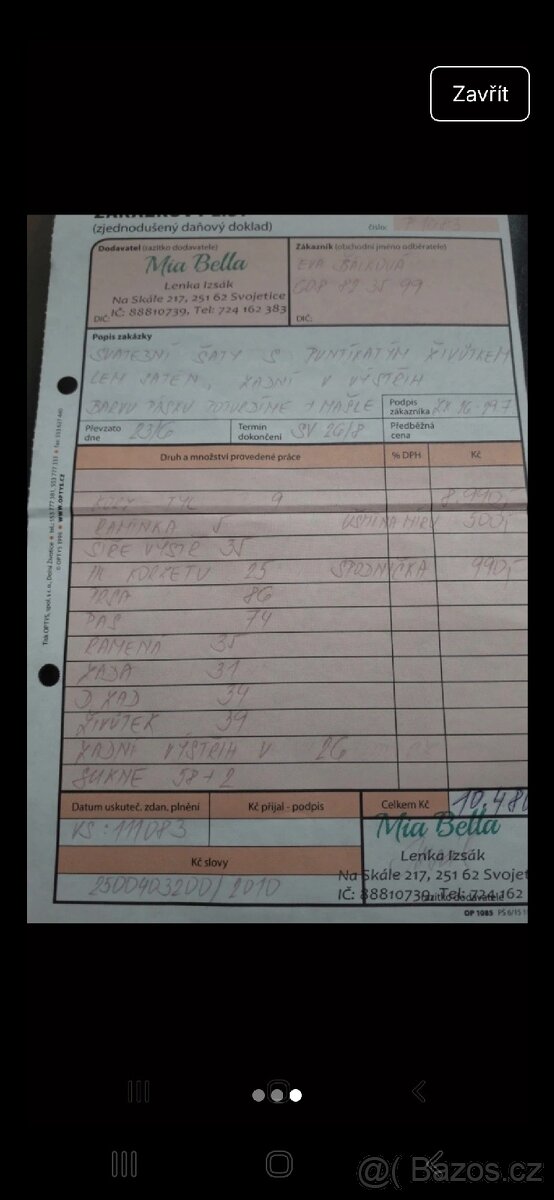 Zavřít
(zjednodušený daňový doklad)
číslo:
Dodavatel (razítko dodavatele)
Mia Bella
Lenka Izsák
Na Skále 217, 251 62 Svojetice
IČ: 88810739, Tel: 724 162 383
DIČ:
Zákazník (obchodní jméno odběratele)
EVA
608 82 35 99
DIČ:
Popis zakázky
SVATEBNÍ ŠATY S PUNTÍKATÝM ŽIVŮTKEM
LEM SATÉN, ZADNÍ V VÝSTŘIH
BARVU PÁSKU POTVRDÍME + MAŠLE
Podpis zákazníka
Převzato dne 23/6
Termín dokončení SV 26/8
Předběžná cena
Druh a množství provedené práce % DPH Kč
TYL 9 8.990,-
RAMÍNKA 5 MÍRY 500,-
ŠÍŘE VÝSTŘ 35
KORZETU 25 SPODNIČKA 990,-
PRSA 86
PAS 74
RAMENA 35
ZÁDA 31
D ZAD 34
ŽIVŮTEK 39
ZADNÍ VÝSTŘIH V 26
SUKNĚ 58+2
Datum uskuteč. zdan. plnění
Kč přijal - podpis
Celkem Kč 10.480
VS: 111083
Mia Bella
Lenka Izsák
Kč slovy
Na Skále 217, 251 62 Svojet
2500403200/2010
IČ: 88810739, Tel: 724 162
razítko dodavatele
OP 1085
Tisk OPTYS, spol. s r. o., Dolní Životice
© OPTYS 1996 WWW.OPTYS.CZ
@( Bazos.cz